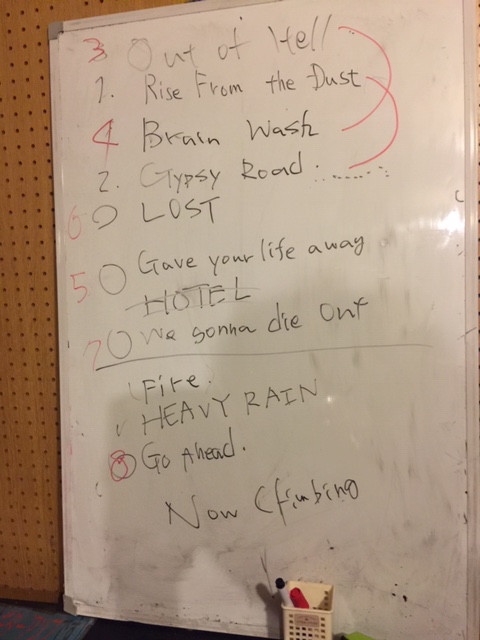 3. Out of Hell
1. Rise From the Dust
4 Brain Wash
2. Gypsy Road.
6 LOST
5 Gave your life away
HOTEL
7 We gonna die out
Fire.
HEAVY RAIN
8 Go Ahead.
Now Climbing